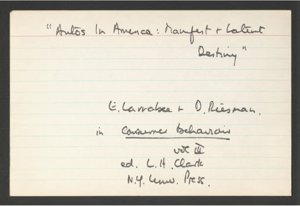 "Autos In America: Manifest + Latent
Destiny"
E. Larrabee + D. Riesman.
in Consumer Behaviour
vol III
ed. L. H. Clark
N.Y. Univ. Press.